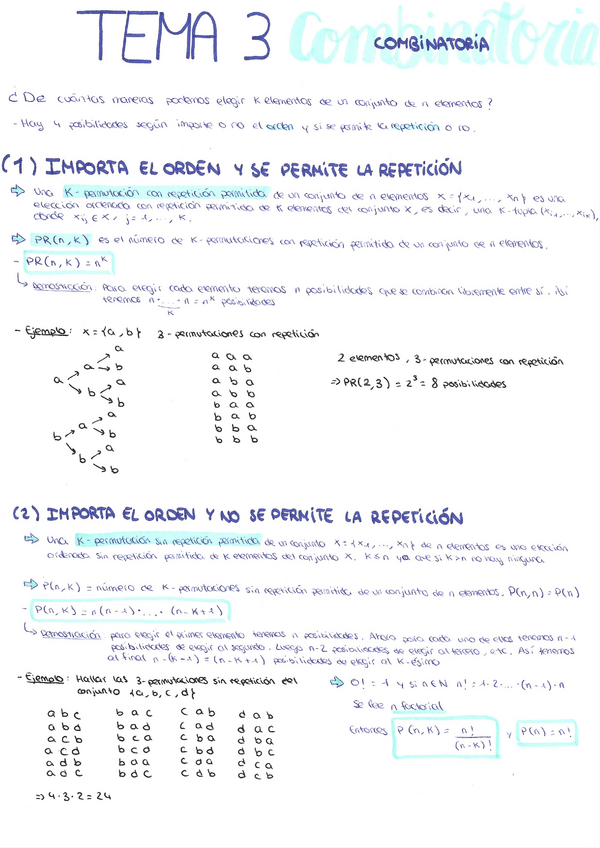 TEMA 3 Combinatoria COMBINATORIA
¿De cuántas maneras podemos elegir K elementos de un conjunto de n elementos?
- Hay 4 posibilidades según importe o no el orden y si se permite la repetición o no.
(1) IMPORTA EL ORDEN Y SE PERMITE LA REPETICIÓN
⇒ Una K-permutación con repetición permitida de un conjunto de n elementos X = {x₁, ..., xₙ} es una
elección ordenada con repetición permitida de K elementos del conjunto X, es decir, una K-tupla (xᵢ₁, ..., xᵢₖ),
donde xᵢⱼ ∈ X, j = 1, ..., K.
⇒ PR(n, K) es el número de K-permutaciones con repetición permitida de un conjunto de n elementos.
- PR(n, K) = nᴷ
↳ Demostración: Para elegir cada elemento tenemos n posibilidades que se combinan libremente entre sí. Así
tenemos n · ... · n = nᴷ posibilidades
K
- Ejemplo: X = {a, b} 3-permutaciones con repetición
a
a → b
a
b → a
b
a
a → b
b
b → a
b
a a a
a a b
a b a
a b b
b a a
b a b
b b a
b b b
2 elementos, 3-permutaciones con repetición
⇒ PR(2,3) = 2³ = 8 posibilidades
(2) IMPORTA EL ORDEN Y NO SE PERMITE LA REPETICIÓN
⇒ Una K-permutación sin repetición permitida de un conjunto X = {x₁, ..., xₙ} de n elementos es una elección
ordenada sin repetición permitida de K elementos del conjunto X. K ≤ n ya que si K > n no hay ninguna
⇒ P(n, K) = número de K-permutaciones sin repetición permitida de un conjunto de n elementos. P(n,n) = P(n)
- P(n, K) = n(n-1) · ... · (n-K+1)
↳ Demostración: para elegir el primer elemento tenemos n posibilidades. Ahora para cada uno de ellos tenemos n-1
posibilidades de elegir al segundo. Luego n-2 posibilidades de elegir al tercero, etc. Así tenemos
al final n-(K-1) = (n-K+1) posibilidades de elegir al K-ésimo
- Ejemplo: Hallar las 3-permutaciones sin repetición del
conjunto {a, b, c, d}
a b c b a c c a b d a b
a b d b a d c a d d a c
a c b b c a c b a d b a
a c d b c d c b d d b c
a d b b d a c d a d c a
a d c b d c c d b d c b
⇒ 4·3·2 = 24
⇒ 0! = 1 y si n ∈ N n! = 1·2· ... ·(n-1)·n
Se lee n factorial
Entonces P(n, K) = n! / (n-K)! y P(n) = n!